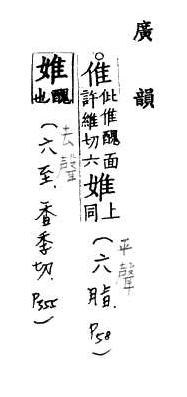 廣韻
○倠 仳倠醜面許維切六 婎 上同 (六脂. P58) 平聲
婎 醜也 (六至. 香季切. P355) 去聲